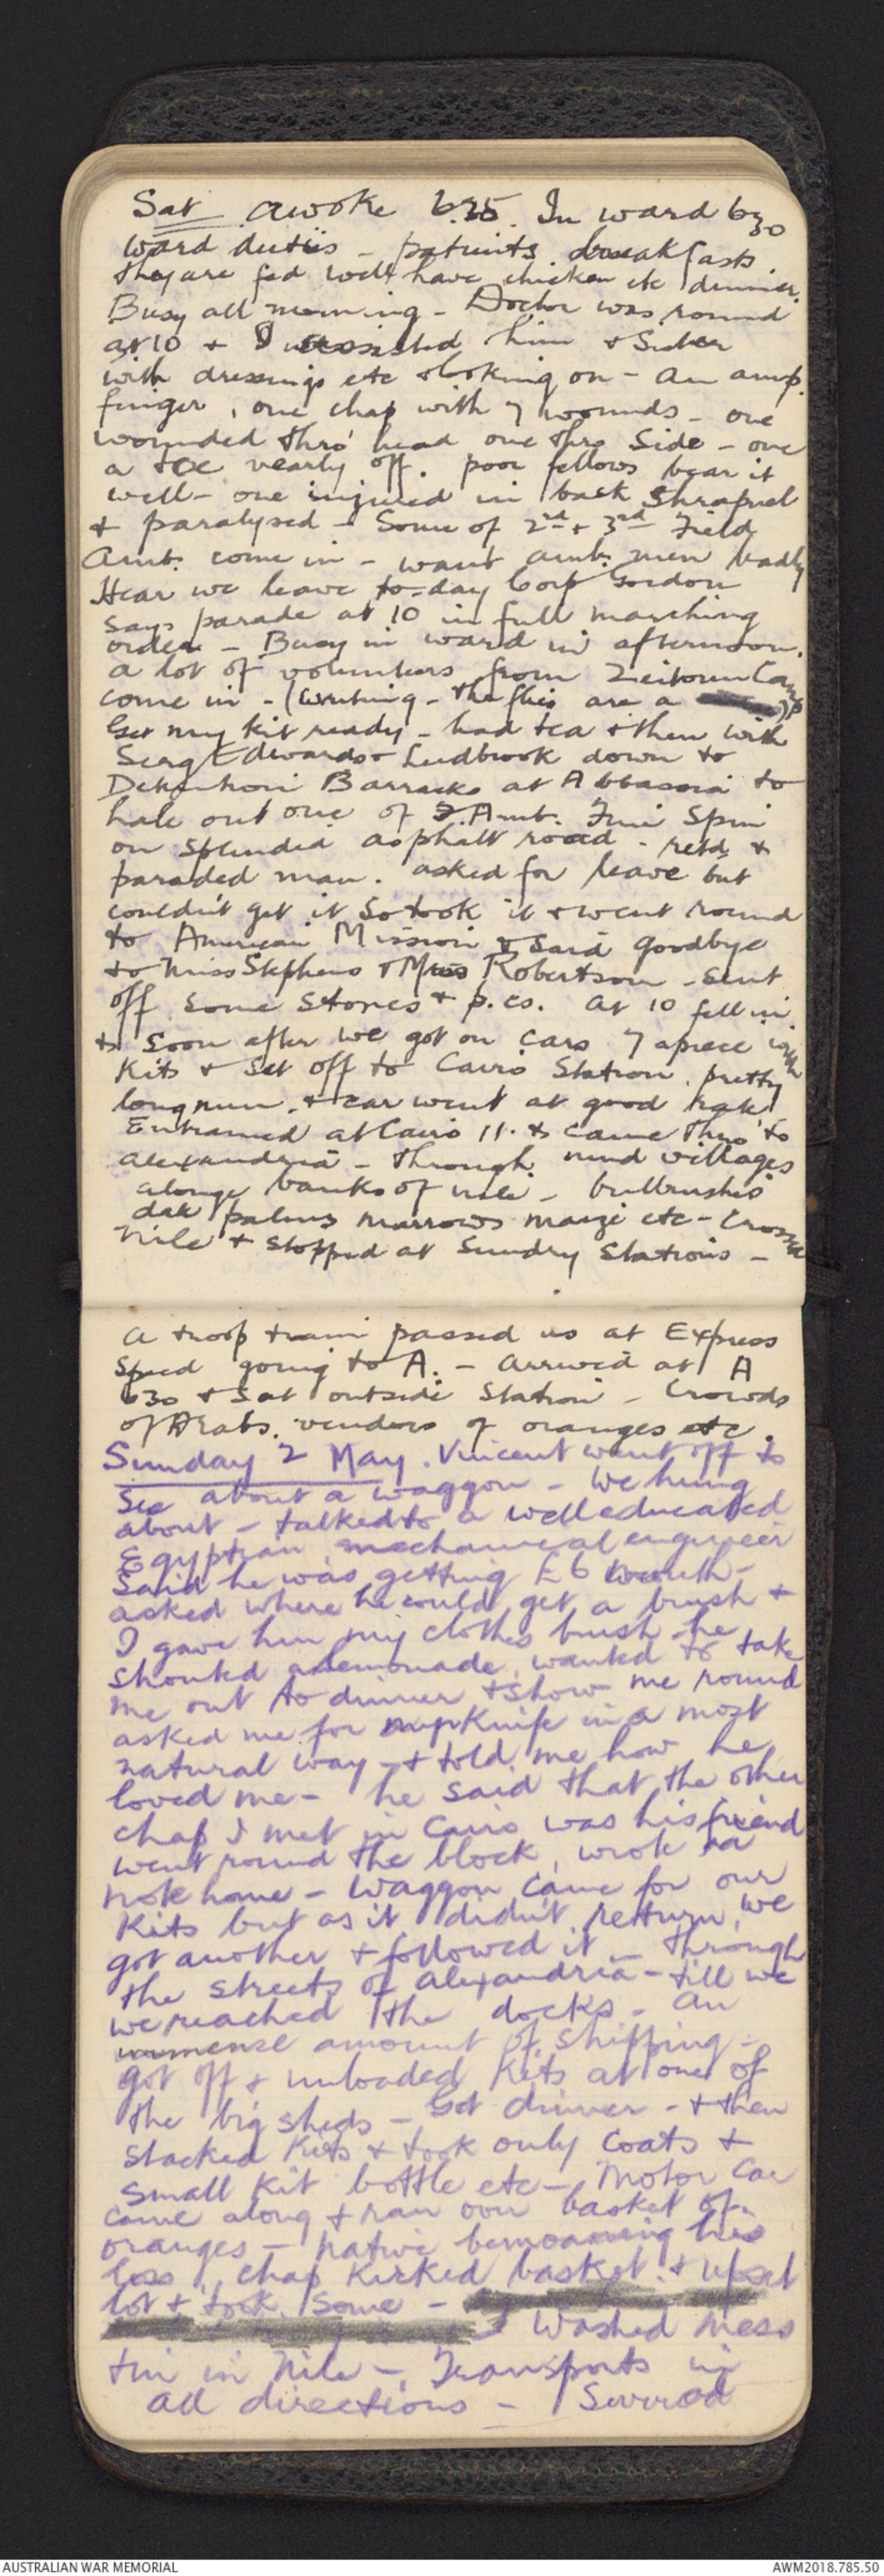 Sat awoke 6.25. In ward 630
ward duties - patients breakfasts
they are fed well have chicken etc dinner.
Busy all morning - Doctor was round
at 10 + I assisted him + Sister
with dressings etc + looking on - an amp.
finger, one chap with 7 wounds - one
wounded thro' head one thro side - one
a toe nearly off. poor fellows bear it
well - one injured in back Shrapnel
+ paralysed - Some of 2nd + 3rd Field
Amb. come in - want amb. men badly
Hear we leave to-day Corp Gordon
says parade at 10 in full marching
order - Busy in ward in afternoon.
a lot of volunteers from Zeitoun Camp
come in - (writing - the flies are a )
Get my kit ready - had tea + then with
Serg Edwards + Ludbrook down to
Detention Barracks at Abbassia to
hale out one of Amb. Fine Spin
on splendid asphalt road - retd +
paraded man. asked for leave but
couldn't get it So took it + went round
to American Mission + said goodbye
to Miss Stephens + Miss Robertson - Sent
off some Stones + p.cs. at 10 fell in
+ soon after we got on cars 7 apiece with
Kits + set off to Cairo Station. pretty
long run. + car went at good rate
Entrained at Cairo 11. + came thro' to
Alexandria - through mud villages
along banks of nile - bullrushes
date palms marrows maize etc - Crossed
Nile + stopped at Sundry Stations -
a troop train passed us at Express
Speed going to A. - arrived at A
630 + Sat outside Station - Crowds
of Arabs. vendors of oranges etc.
Sunday 2 May. Vincent went off to
see about a waggon - We hung
about - talked to a well educated
Egyptian mechanical engineer
Said he was getting £6 month -
asked where he could get a brush +
I gave him my clothes brush - he
shouted a lemonade, wanted to take
me out to dinner + show me round
asked me for my knife in a most
natural way - + told me how he
loved me - he said that the other
chap I met in Cairo was his friend
went round the block, wrote a
note home - Waggon came for our
Kits but as it didn't return, we
got another + followed it - through
the streets of Alexandria - till we
we reached the docks - an
immense amount of shipping -
got off + unloaded Kits at one of
the big sheds - Got dinner - + then
stacked Kits + took only Coats +
small Kit bottle etc - Motor Car
came along + ran over basket of
oranges - native bemoaning his
loss, chap kicked basket + upset
lot + took some -
Washed mess
tin in Nile - Transports in
all directions - Several
AUSTRALIAN WAR MEMORIAL
AWM2018.785.50